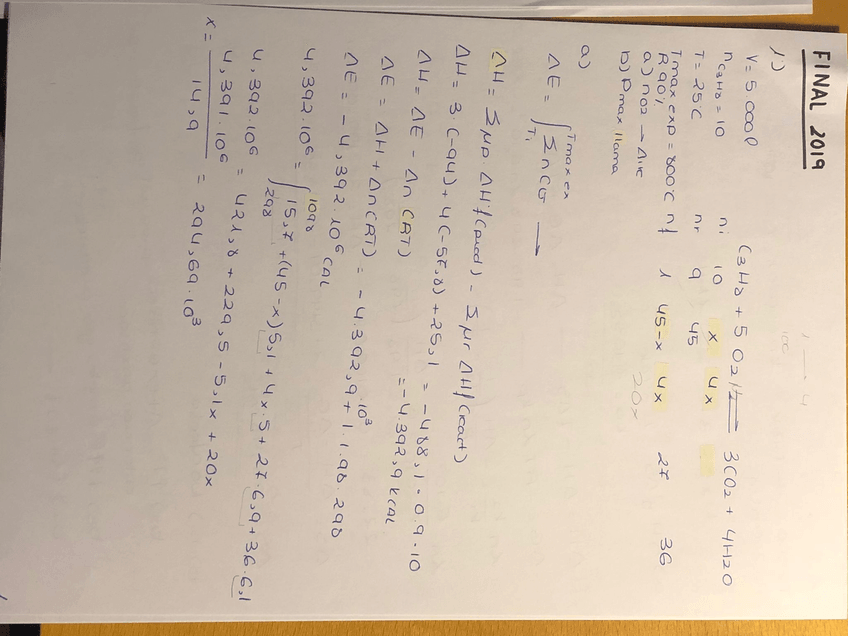 FINAL 2019
1')
V = 5000l
n C3H8 = 10
T = 25C
Tmax exp = 800ºC
R 90%
a) nO2 → Aire
b) Pmax llama
C3H8 + 5 O2 ⇌ 3CO2 + 4H2O
ni 10 x 4x
nr 9 45
nf 1 45-x 4x 27 36
20x
a)
ΔE = ∫T1 Tmax ex Σ n CG →
ΔH = Σ μp. ΔHf(prod) - Σ μr ΔHf(react)
ΔH = 3.(-94) + 4(-57,8) + 25,1 = -488,1 = 0.9.10
= -4.392,9 kCAL
ΔH = ΔE - Δn (RT)
ΔE = ΔH + Δn(RT) = -4.392,9.10³ + 1.1.98.298
ΔE = -4,392.10⁶ CAL
4,392.10⁶ = ∫298 1098 15,7 + (45-x)5,1 + 4x.5 + 27.6,9 + 36.6,1
4,392.10⁶ = 421,8 + 229,5 - 5,1x + 20x
x = 4,391.10⁶ / 14,9 = 294,69.10³